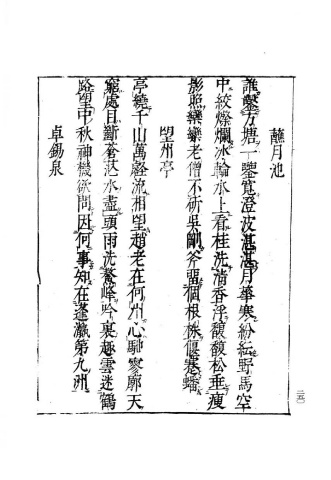 蘸月池
誰鑿方塘一鑒寬澄波湛湛月華寒紛紜野馬空
中絞燦爛冰輪水上看桂洗淸香浮馥馥松垂瘦
影照欒欒老僧不斫吳剛斧留個根株偃蹇蟠
望州亭
亭繞千山萬壑流相望趙老在何州心馳寥廓天
窮處目斷蒼茫水盡頭雨洗鰲峰吟裏趣雲迷鶴
路望中秋神機欲問因何事知在蓬瀛第九洲
卓錫泉